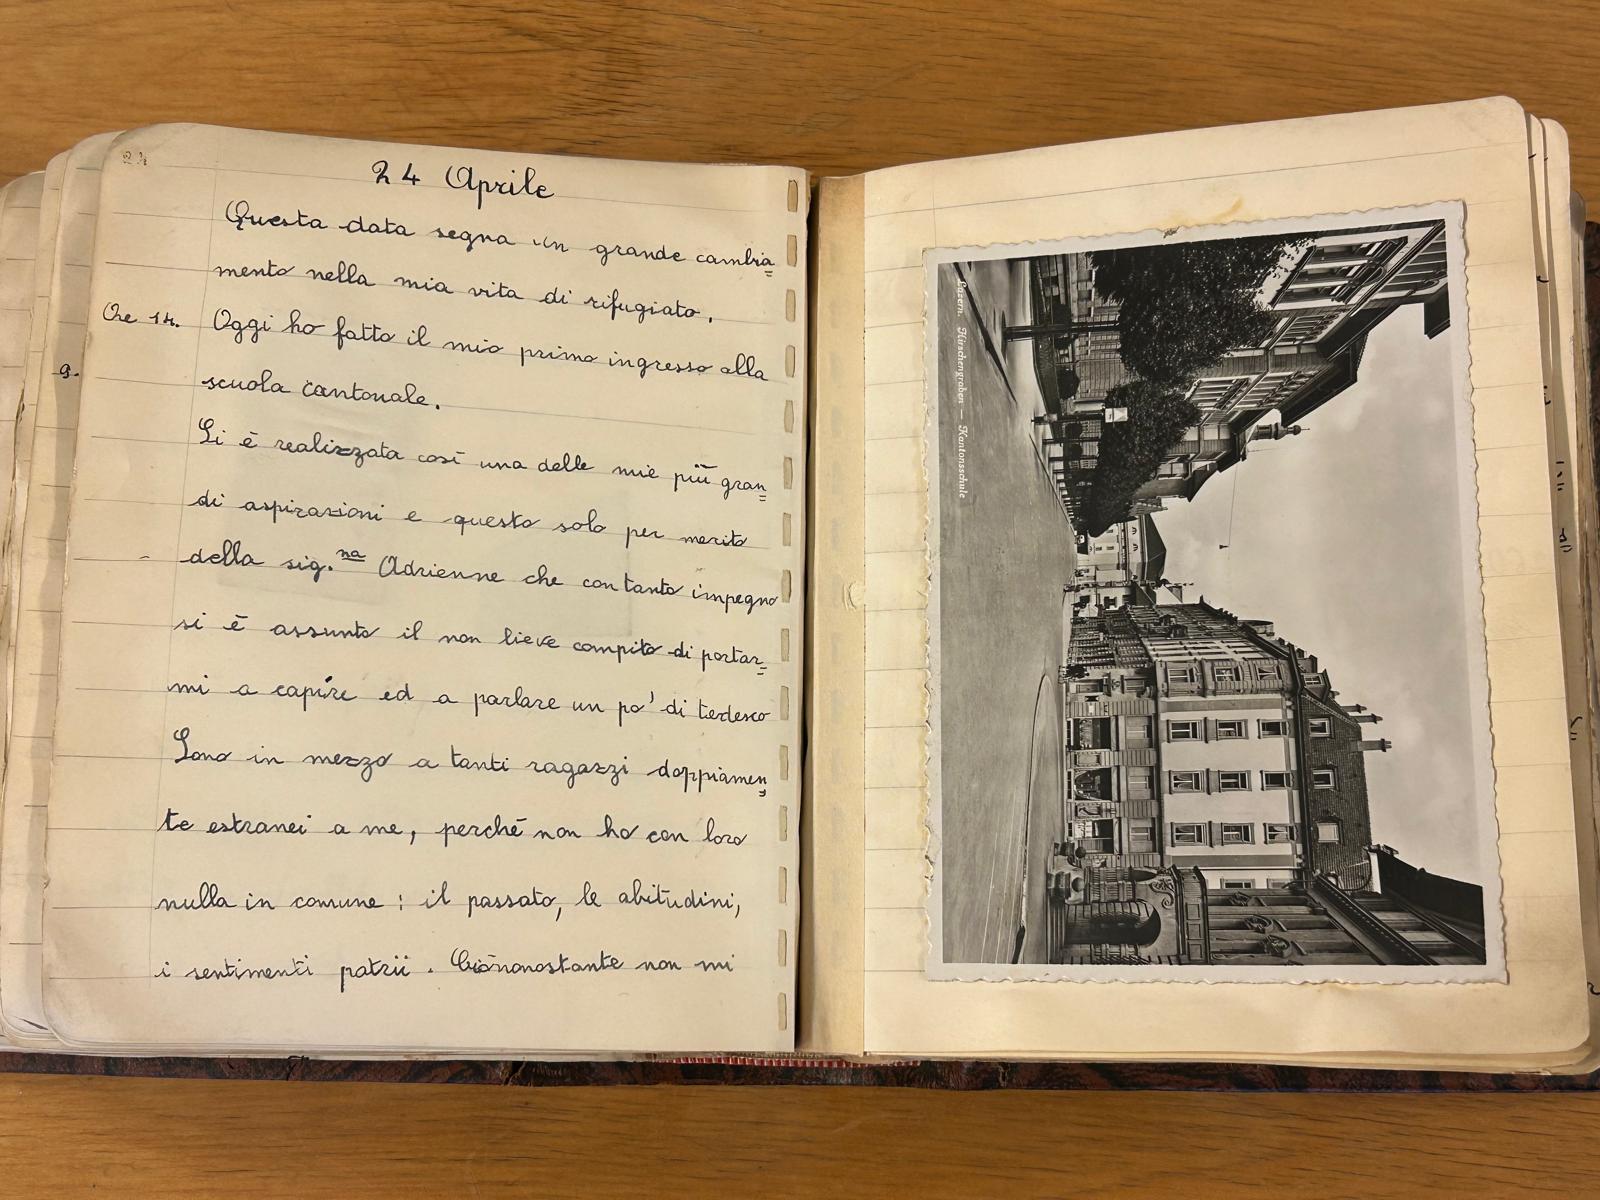 24 Aprile
Questa data segna un grande cambia=
mento nella mia vita di rifugiato.
Ore 14. Oggi ho fatto il mio primo ingresso alla
scuola cantonale.
Si è realizzata così una delle mie più gran=
di aspirazioni e questo solo per merito
della sig.na Adrienne che con tanto impegno
si è assunto il non lieve compito di portar=
mi a capire ed a parlare un po' di tedesco
Sono in mezzo a tanti ragazzi doppiamen=
te estranei a me, perchè non ho con loro
nulla in comune : il passato, le abitudini,
i sentimenti patrii. Ciònonostante non mi
9.
Luzern. Hirschengraben — Kantonsschule